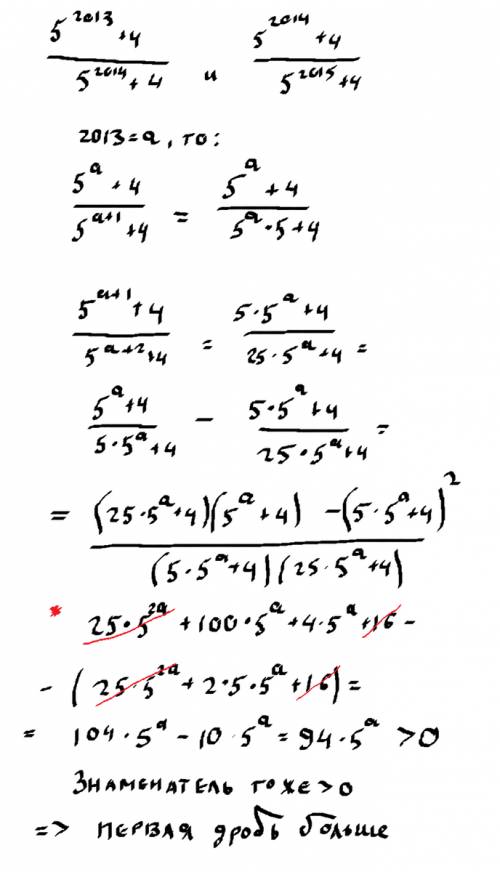 (5^2013 + 4)/(5^2014 + 4) и (5^2014 + 4)/(5^2015 + 4)
2013 = a, то:
(5^a + 4)/(5^(a+1) + 4) = (5^a + 4)/(5^a · 5 + 4)
(5^(a+1) + 4)/(5^(a+2) + 4) = (5 · 5^a + 4)/(25 · 5^a + 4) =
(5^a + 4)/(5 · 5^a + 4) − (5 · 5^a + 4)/(25 · 5^a + 4) =
= ((25 · 5^a + 4)(5^a + 4) − (5 · 5^a + 4)^2)/((5 · 5^a + 4)(25 · 5^a + 4))
* 25 · 5^2a + 100 · 5^a + 4 · 5^a + 16 −
− (25 · 5^2a + 2 · 5 · 5^a + 16) =
= 104 · 5^a − 10 · 5^a = 94 · 5^a > 0
Знаменатель тоже > 0
=> первая дробь больше